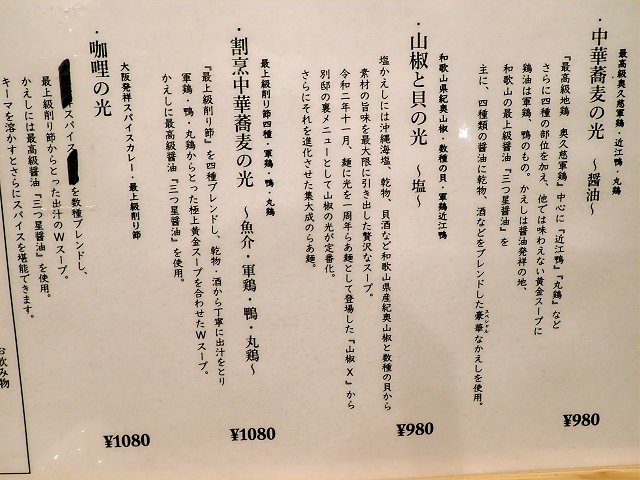 最高級奥久慈軍鶏・近江鴨・丸鶏
・中華蕎麦の光 ～醤油～
『最高級地鶏 奥久慈軍鶏』中心に『近江鴨』『丸鶏』など
さらに四種の部位を加え、他では味わえない黄金スープに
鶏油は軍鶏、鴨のもの。かえしは醤油発祥の地、
和歌山の最上級醤油『三つ星醤油』を
主に、四種類の醤油に乾物、酒などをブレンドした豪華なかえしを使用。
スペシャル
¥980
和歌山県紀奥山椒・数種の貝・軍鶏近江鴨
・山椒と貝の光 ～塩～
塩かえしには沖縄海塩、乾物、貝酒など和歌山県産紀奥山椒と数種の貝から
素材の旨味を最大限に引き出した贅沢なスープ。
令和二年十一月、麺に光を一周年らあ麺として登場した『山椒X』から
別邸の裏メニューとして山椒の光が定番化。
さらにそれを進化させた集大成のらあ麺。
¥980
最上級削り節四種・軍鶏・鴨・丸鶏
・割烹中華蕎麦の光 ～魚介・軍鶏・鴨・丸鶏～
『最上級削り節』を四種ブレンドし、乾物・酒から丁寧に出汁をとり
軍鶏・鴨・丸鶏からとった極上黄金スープを合わせたWスープ。
かえしに最高級醤油『三つ星醤油』を使用。
¥1080
大阪発祥スパイスカレー・最上級削り節
・咖哩の光
スパイス
を数種ブレンドし、
最上級削り節からとった出汁のWスープ。
かえしには最高級醤油『三つ星醤油』を使用。
キーマを溶かすとさらにスパイスを堪能できます。
¥1080
お飲み物